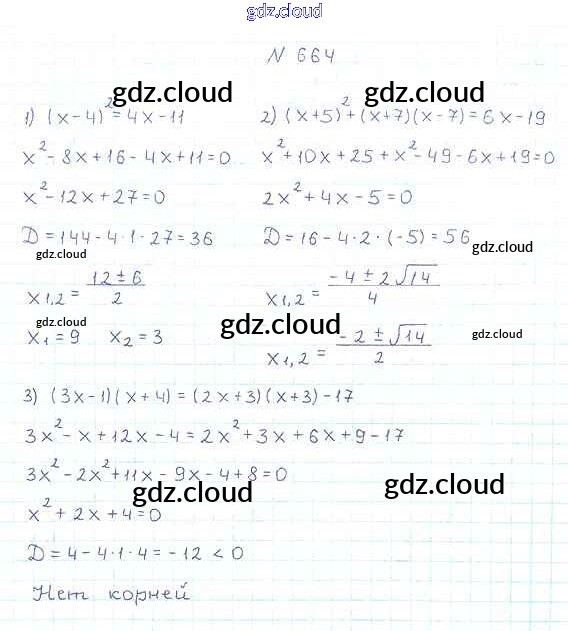 gdz.cloud
№ 664
gdz.cloud gdz.cloud
1) (x-4)²=4x-11
x²-8x+16-4x+11=0
x²-12x+27=0
D=144-4·1·27=36
gdz.cloud
x1,2 = (12±6)/2
gdz.cloud
x1=9 x2=3
2) (x+5)²+(x+7)(x-7)=6x-19
x²+10x+25+x²-49-6x+19=0
2x²+4x-5=0
D=16-4·2·(-5)=56
gdz.cloud
x1,2 = (-4±2√14)/4
gdz.cloud gdz.cloud
x1,2 = (-2±√14)/2
3) (3x-1)(x+4)=(2x+3)(x+3)-17
3x²-x+12x-4=2x²+3x+6x+9-17
3x²-2x²+11x-9x-4+8=0
gdz.cloud gdz.cloud
x²+2x+4=0
D=4-4·1·4=-12<0
Нет корней